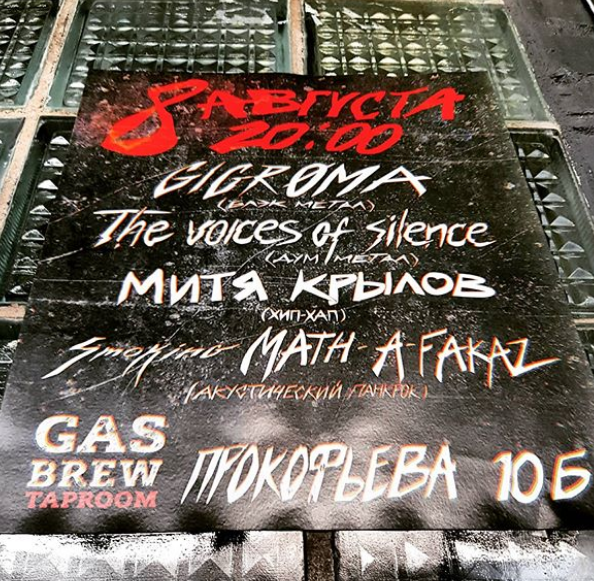 8 АВГУСТА
20:00
GIGRØMA
(БЛЭК МЕТАЛ)
The voices of silence
(ДУМ МЕТАЛ)
МИТЯ КРЫЛОВ
(ХИП-ХАП)
SMOKING MATH-A-FAKAZ
(АКУСТИЧЕСКИЙ ПАНКРОК)
GAS
BREW
TAPROOM
ПРОКОФЬЕВА 10 Б